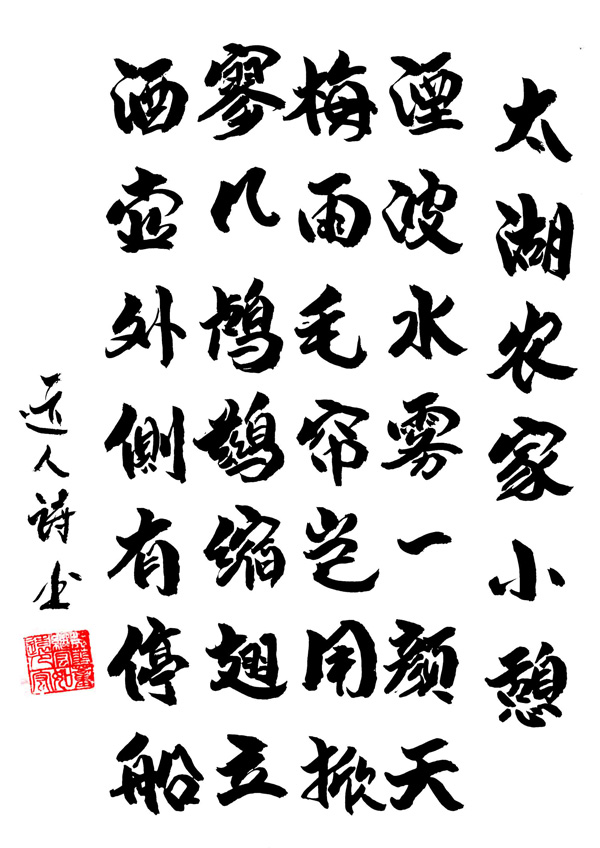 太湖农家小憩
湮波水雾一颜天
梅雨毛帘岂用掀
寥几鸬鹚缩翅立
酒壶外侧有停船
人诗书